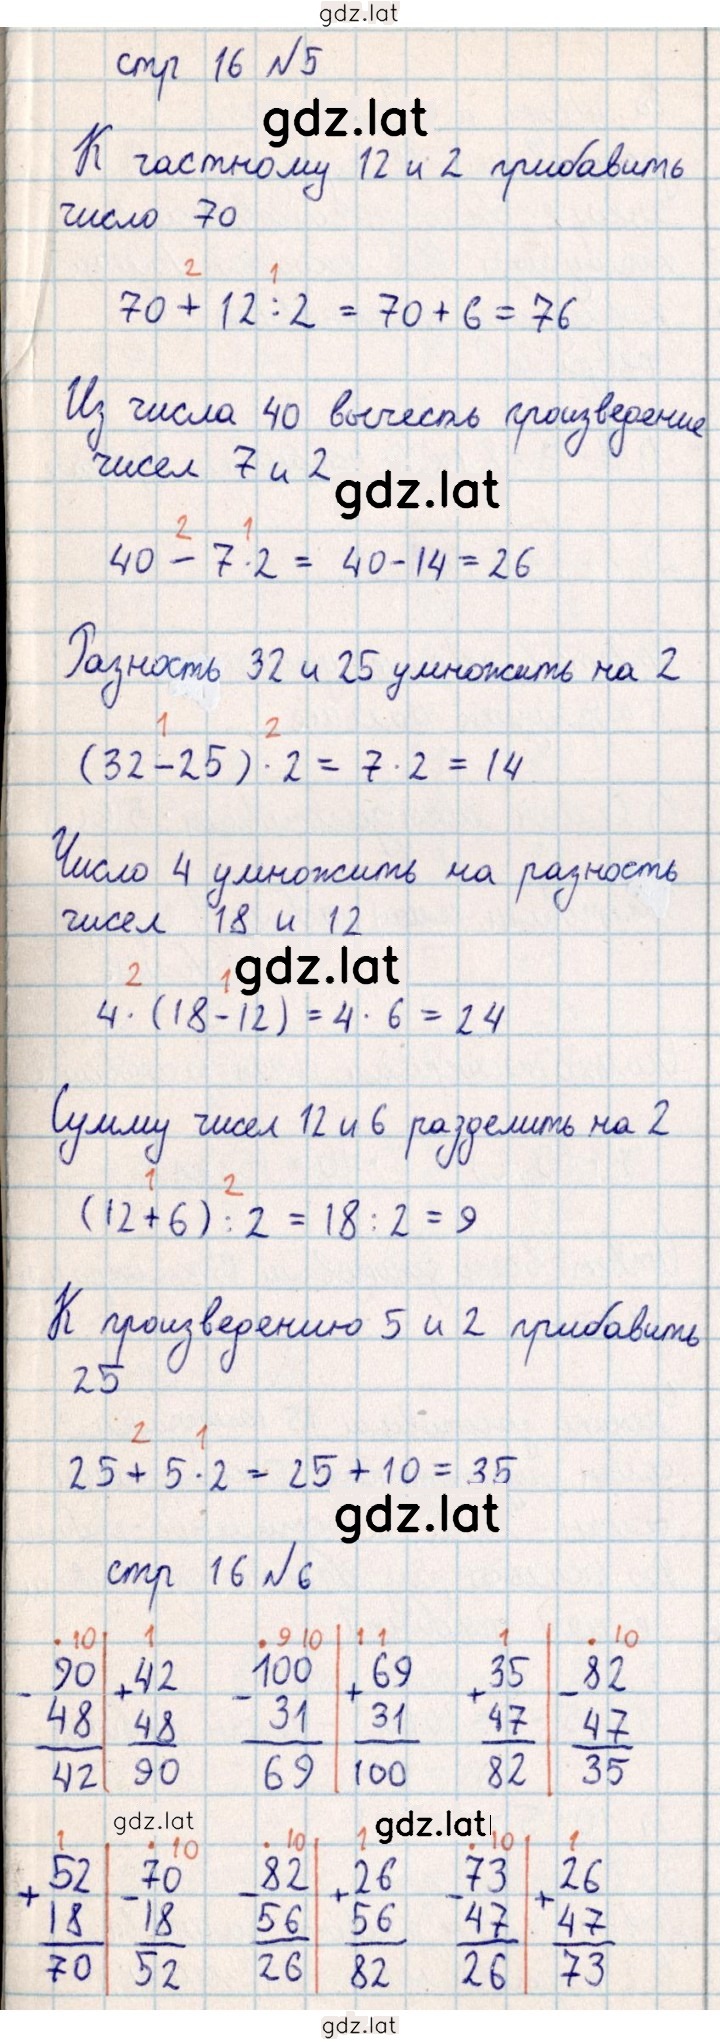 gdz.lat
стр 16 №5
gdz.lat
К частному 12 и 2 прибавить
число 70
2 1
70 + 12 : 2 = 70 + 6 = 76
Из числа 40 вычесть произведение
чисел 7 и 2
gdz.lat
2 1
40 - 7 · 2 = 40 - 14 = 26
Разность 32 и 25 умножить на 2
1 2
(32 - 25) · 2 = 7 · 2 = 14
Число 4 умножить на разность
чисел 18 и 12
gdz.lat
2 1
4 · (18 - 12) = 4 · 6 = 24
Сумму чисел 12 и 6 разделить на 2
1 2
(12 + 6) : 2 = 18 : 2 = 9
К произведению 5 и 2 прибавить
25
2 1
25 + 5 · 2 = 25 + 10 = 35
gdz.lat
стр 16 №6
· 10 | 1 · 9 10 | 1 1 1 | · 10
- 90 | + 42 - 100 | + 69 + 35 | - 82
48 | 48 31 | 31 47 | 47
42 | 90 69 | 100 82 | 35
gdz.lat gdz.lat
1 | · 10 · 10 | 1 · 10 | 1
+ 52 | - 70 - 82 | + 26 - 73 | + 26
18 | 18 56 | 56 47 | 47
70 | 52 26 | 82 26 | 73
gdz.lat